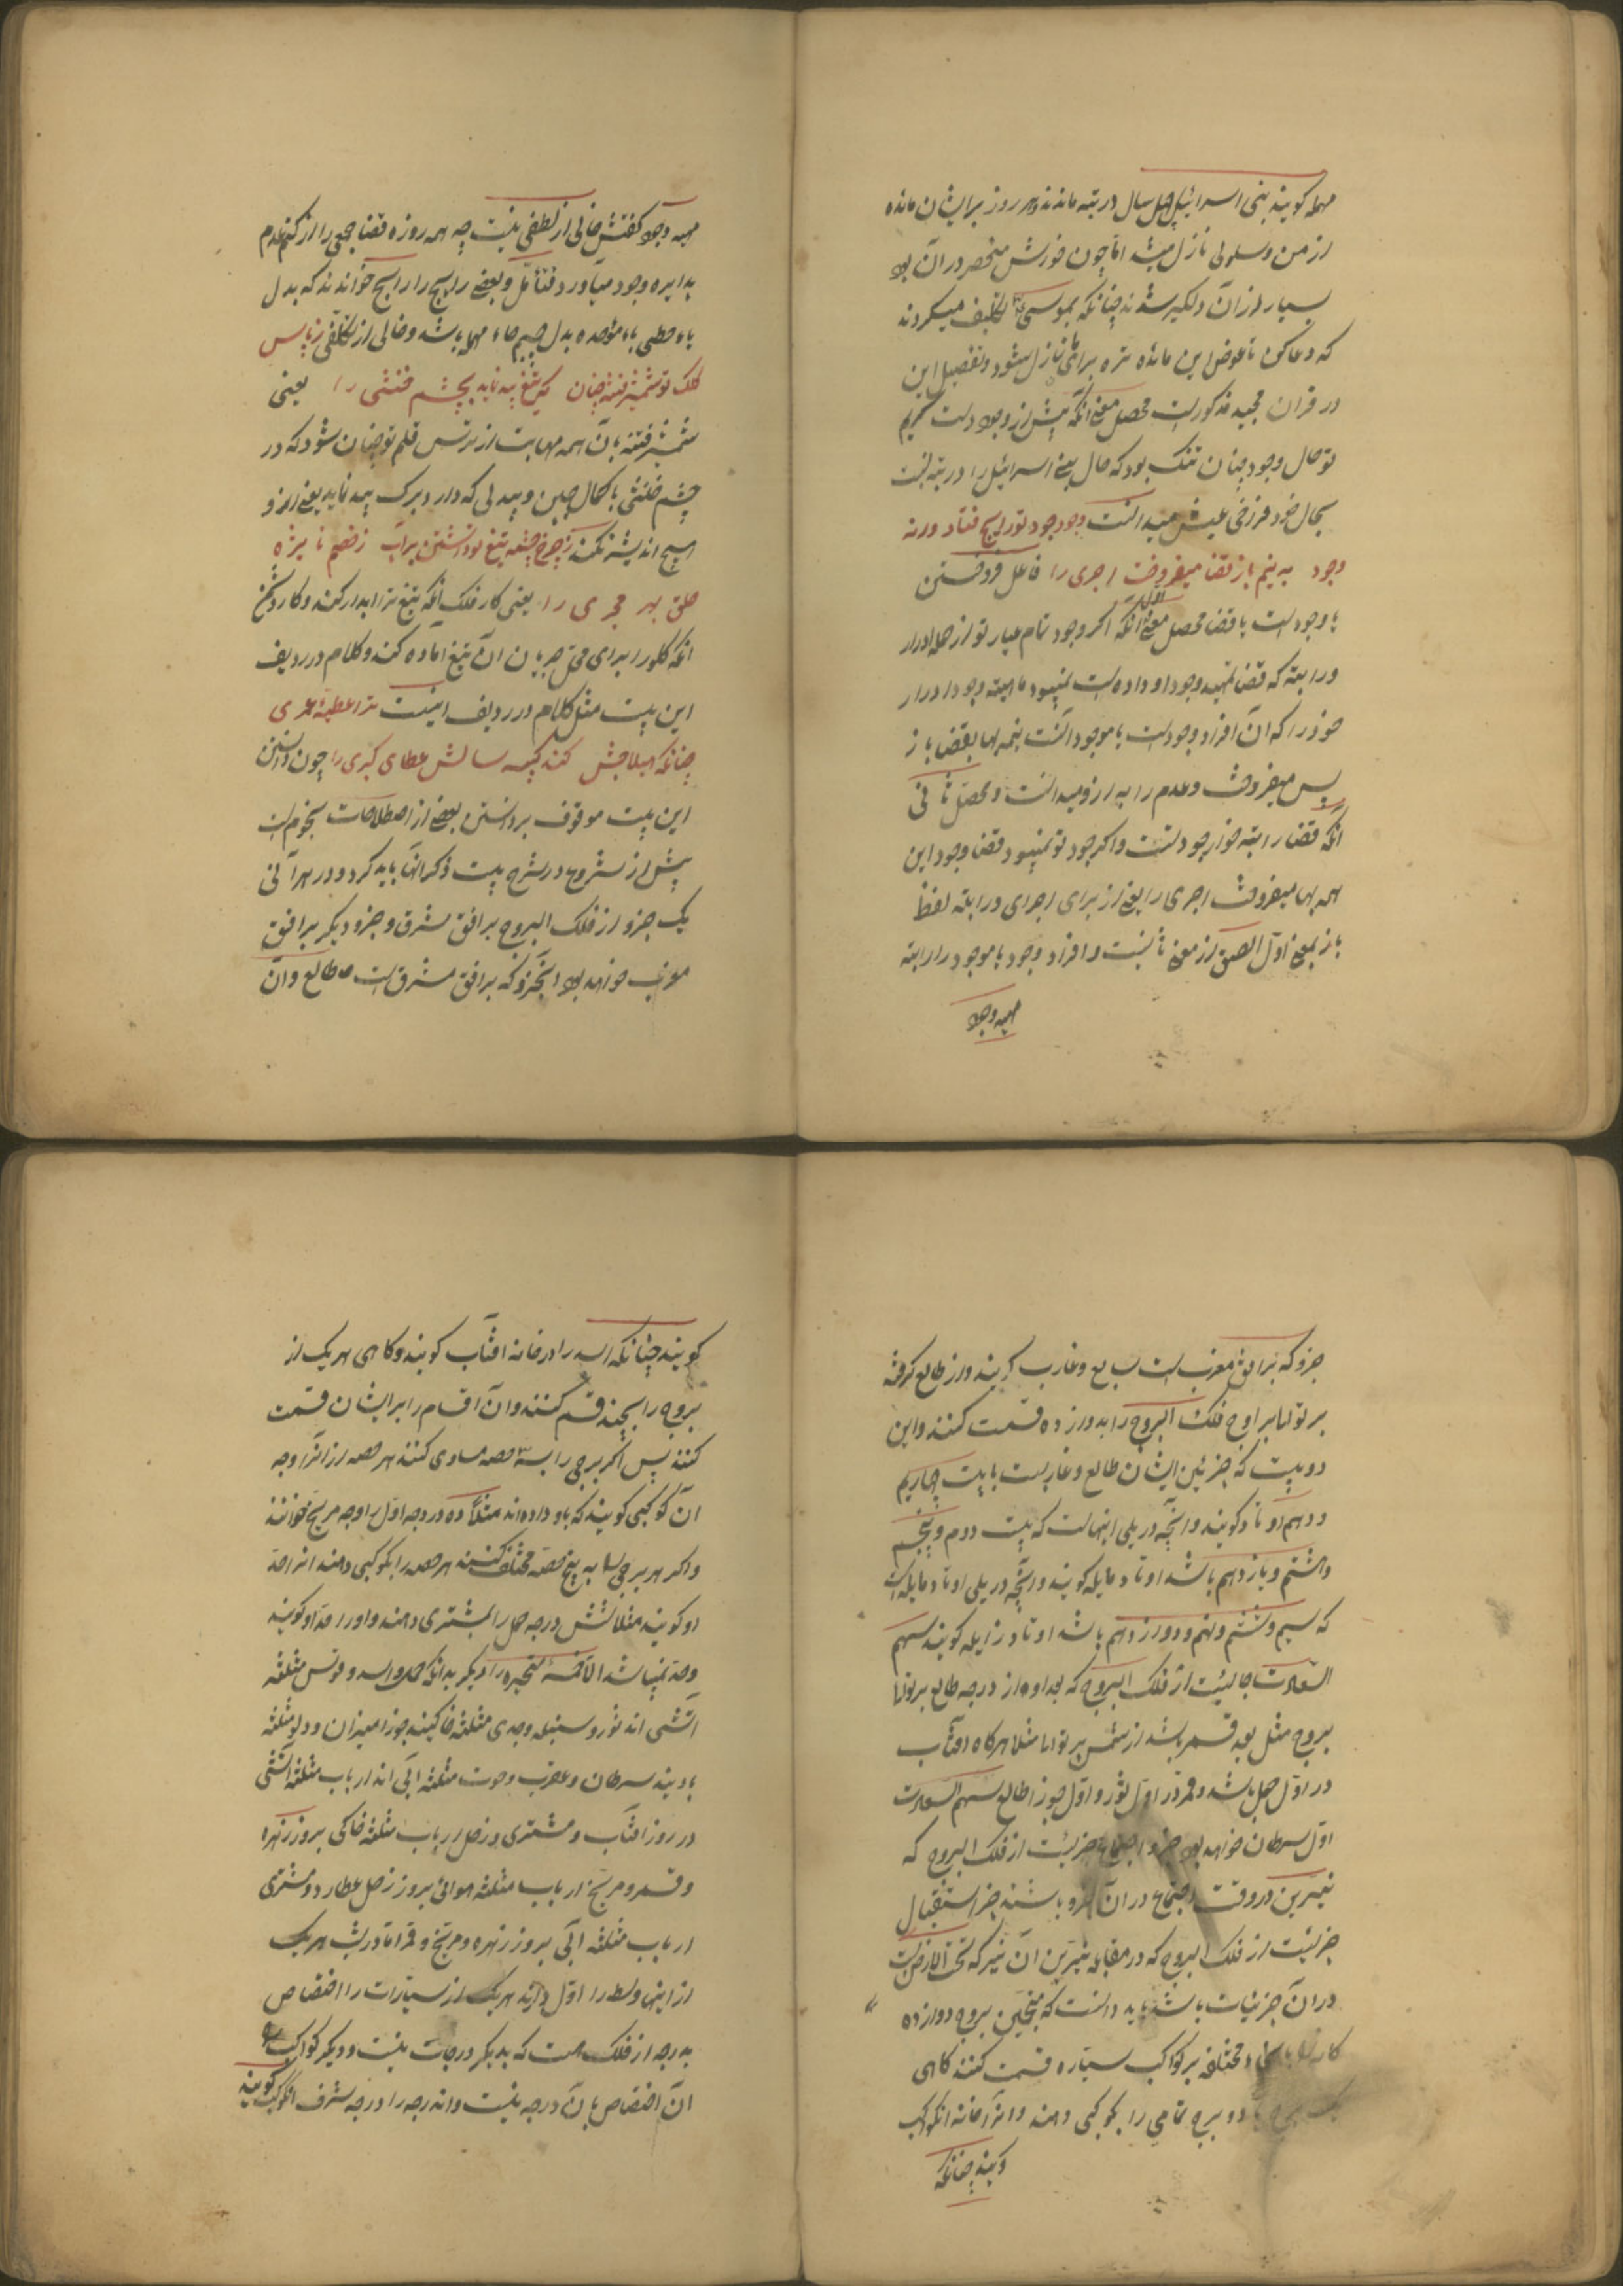 مهمله کویند بنی اسرائیل چهل سال در تیه ماندند و هر روز بر ایشان مائده
از من و سلوی نازل میشد اما چون خورش منحصر در آن بود
بسیار از آن دلکیر شدند چنانکه بموسی تکلیف میکردند
که دعا کن تا عوض این مائده تره برای ما نازل شود و تفصیل این
در قرآن مجید مذکور است محصل معنی آنکه پیش از وجود دست کریم
تو حال وجود چنان تنک بود که حال بنی اسرائیل را در تیه نسبت
بحال خود فراخی عیش میدانست وجود جود تو رایج فتاد ورنه
وجود به نیم باز قضا میفروخت اجری را فاعل فروختن
یا وجود است یا قضا محصل معنی الاول آنکه اکر وجود تمام عیار تو از جمله ادرار
و راتبه که قضا تمهید وجود او داده است نمیبود ماهیة وجود ادرار
خود را که آن افراد وجود است یا موجود آنست به نیم بها بقضا باز
پس میفروخت و عدم را به از او میدانست و محصل ثانی
آنکه قضا راتبه خوار جود تست و اکر جود تو نمیبود قضا وجود این
همه بها میفروخت اجری را یعنی از برای اجرای و راتبه لفظ
باز بمعنی اول الصق از معنی ثانیست و افراد وجود یا موجود را راتبه
مهیه وجود
مهیه وجود کفتنش خالی از لطفی نیست چه همه روزه قضا جمعی را از کتم عدم
بدایره وجود میآورد فتامل و بعضی رایج را رابح خوانده اند که بدل
یاء حطی باء موحده بدل جیم حاء مهمله باشد و خالی از تکلفی نیست ز پاس
کلک تو شمشیر فتنه چنان که تیغ بید نماید بچشم خنثی را یعنی
شمشیر فتنه با آن همه مهابت از ترس قلم تو چنان شود که در
چشم خنثی با کمال جبن و بیدلی که دارد برک بید نماید یعنی از او
هیچ اندیشه نکند ز چرخ چشمه تیغ تو داشتن پر آب ز خصم نایژه
حلق بهر مجری را یعنی کار فلک آنکه تیغ ترا ابدار کند و کار دشمن
آنکه کلو را برای محل جریان آن تیغ آماده کند و کلام در ردیف
این بیت مثل کلام در ردیف اینست ترا عطیه عمری
چنانکه هیلاجش کند کبیسه سالش عطای کبری را چون دانستن
این بیت موقوف بر دانستن بعضی از اصطلاحات نجوم است
پیش از شروع در شرح بیت ذکر آنها باید کرد و در هر آنی
یک جزو از فلک البروج بر افق مشرق و جزو دیکر بر افق
مغرب خواهد بود آنجزو که بر افق مشرق است طالع و آن
جزو که بر افق مغرب است سابع و غارب کویند و از طالع کرفته
بر توالی بر اوج فلک البروج را بدوازده قسمت کنند و این
دو بیت که جزئین ایشان طالع و غاربست با بیت چهارم
و دهم اوتاد کویند و آنچه در یلی اینهاست که بیت دوم و پنجم
و هشتم و یازدهم باشد اوتاد مایله کویند و آنچه در یلی اوتاد مایله است
که سیم و ششم و نهم و دوازدهم باشد اوتاد زایله کویند سهم
السعادت جائیست از فلک البروج که بعد او از درجه طالع بر توالی
بروج مثل بعد قمر باشد از شمس بر توالی مثلا هرکاه آفتاب
در اول حمل باشد و قمر در اول ثور و اول جوزا طالع سهم السعادت
اول سرطان خواهد بود جزو اجتماع جزئیست از فلک البروج که
نیرین در وقت اجتماع در آن جزو باشند جزو استقبال
جزئیست از فلک البروج که در مقابله نیرین آن نیر که تحت الارض است
در آن جزئیات باشد باید دانست که منجمین بروج دوازده
کانه را بانحاء مختلفه بر کواکب سیاره قسمت کنند کاهی
یک برج یا دو برج تمامی را بکوکبی دهند و آنرا خانه آنکوکب
کویند چنانکه
کویند چنانکه اسد را در خانه افتاب کویند و کاهی هر یک از
بروج را بچند قسم کنند و آن اقسام را بر ایشان قسمت
کنند پس اکر برجی را بسه حصه مساوی کنند هر حصه از آنرا وجه
آن کوکبی کویند که باو داده اند مثلا ده درجه اول را وجه مریخ خوانند
و اکر هر برجی را به پنج حصه مختلف کنند هر حصه را بکوکبی دهند آنرا حد
او کویند مثلا شش درجه حمل را بمشتری دهند و او را حد او کویند
و حد نمیباشد الا خمسه متحیره را دیکر بدانکه حمل و اسد و قوس مثلثه
آتشی اند ثور و سنبله و جدی مثلثه خاکیند جوزا میزان و دلو مثلثه
بادیند سرطان و عقرب و حوت مثلثه آبی اند ارباب مثلثه آتشی
در روز افتاب و مشتری و زحل ارباب مثلثه خاکی بروز زهره
و قمر و مریخ ارباب مثلثه هوائی بروز زحل عطارد و مشتری
ارباب مثلثه آبی بروز زهره و مریخ و قمر اما در شب هر یک
از اینها وسط را اول دارند هر یک از سیارات را اختصاص
بدرجه از فلک هست که بدیکر درجات نیست و دیکر کواکب را
آن اختصاص بآن درجه نیست و اندرجه را درجه شرف آنکوکب کویند